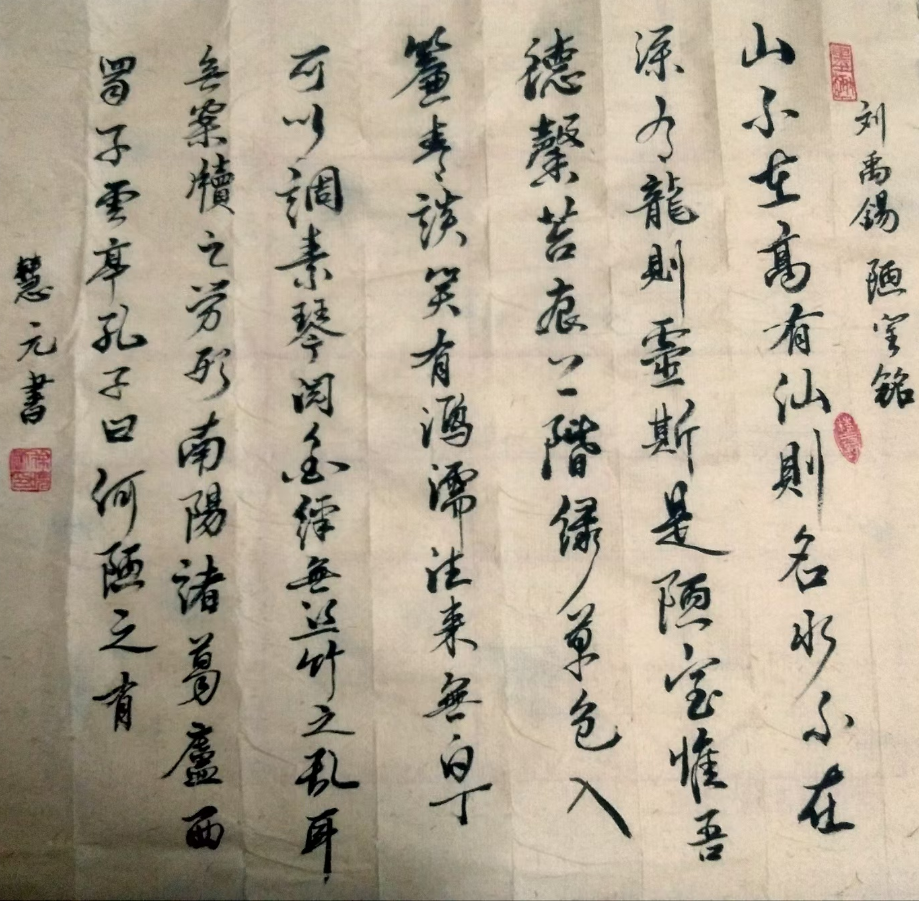 刘禹锡 陋室铭
山不在高有仙則名水不在
深有龍則靈斯是陋室惟吾
德馨苔痕上階緑草色入
簾青談笑有鴻儒往来無白丁
可以調素琴閱金經無丝竹之乱耳
無案牘之劳形南陽諸葛廬西
蜀子雲亭孔子曰何陋之有
慧元書